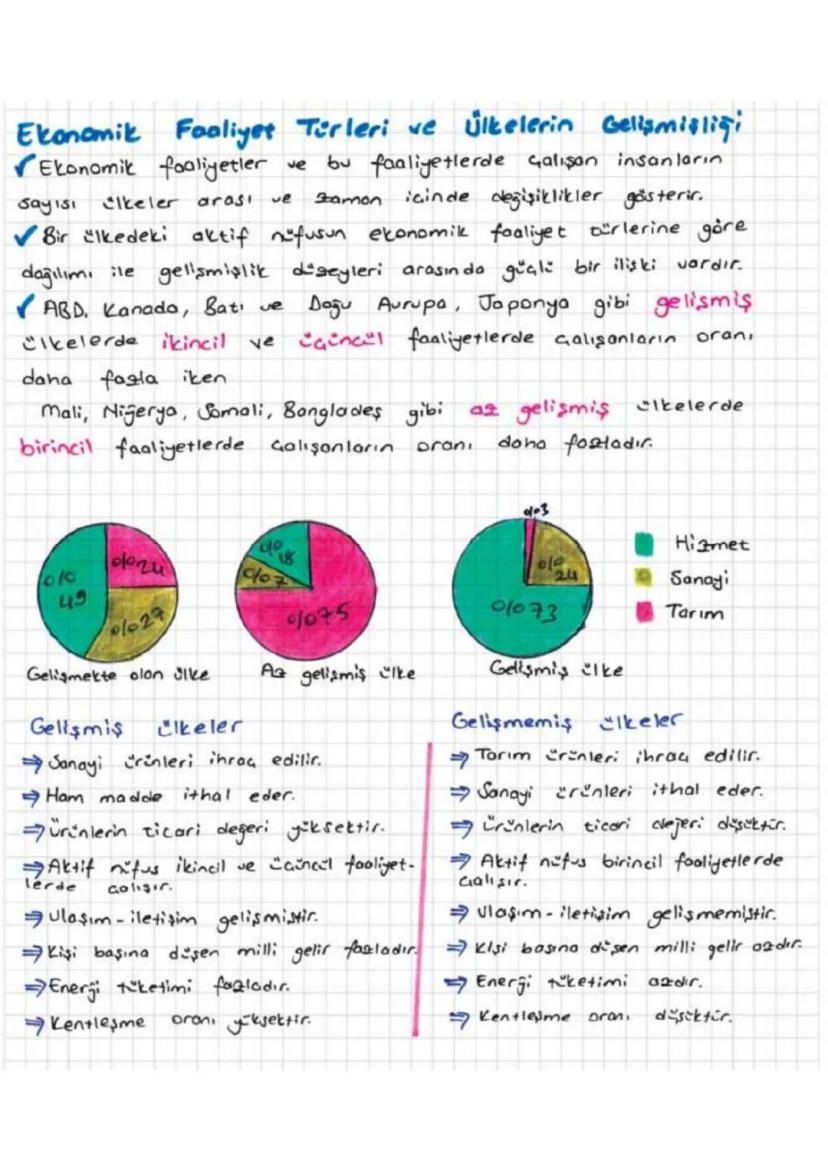 Ekonomik Faaliyet Türleri ve Ülkelerin Gelişmişliği
✓ Ekonomik faaliyetler ve bu faaliyetlerde çalışan insanların
sayısı ülkeler arası ve zaman içinde değişiklikler gösterir.
✓ Bir ülkedeki aktif nüfusun ekonomik faaliyet türlerine göre
dağılımı ile gelişmişlik düzeyleri arasında güçlü bir ilişki vardır.
✓ ABD, Kanada, Batı ve Doğu Avrupa, Japonya gibi gelişmiş
ülkelerde ikincil ve üçüncül faaliyetlerde çalışanların oranı
daha fazla iken
Mali, Nijerya, Somali, Bangladeş gibi az gelişmiş ülkelerde
birincil faaliyetlerde çalışanların oranı daha fazladır.
%49 %24 %27
Gelişmekte olan ülke
%18 %7 %75
Az gelişmiş ülke
%3 %24 %73
Gelişmiş ülke
Hizmet
Sanayi
Tarım
Gelişmiş ülkeler
⇒ Sanayi ürünleri ihraç edilir.
⇒ Ham madde ithal eder.
⇒ Ürünlerin ticari değeri yüksektir.
⇒ Aktif nüfus ikincil ve üçüncül faaliyet-
lerde çalışır.
⇒ Ulaşım-iletişim gelişmiştir.
⇒ Kişi başına düşen milli gelir fazladır.
⇒ Enerji tüketimi fazladır.
⇒ Kentleşme oranı yüksektir.
Gelişmemiş ülkeler
⇒ Tarım ürünleri ihraç edilir.
⇒ Sanayi ürünleri ithal eder.
⇒ Ürünlerin ticari değeri düşüktür.
⇒ Aktif nüfus birincil faaliyetlerde
çalışır.
⇒ Ulaşım-iletişim gelişmemiştir.
⇒ Kişi başına düşen milli gelir azdır.
⇒ Enerji tüketimi azdır.
⇒ Kentleşme oranı düşüktür.